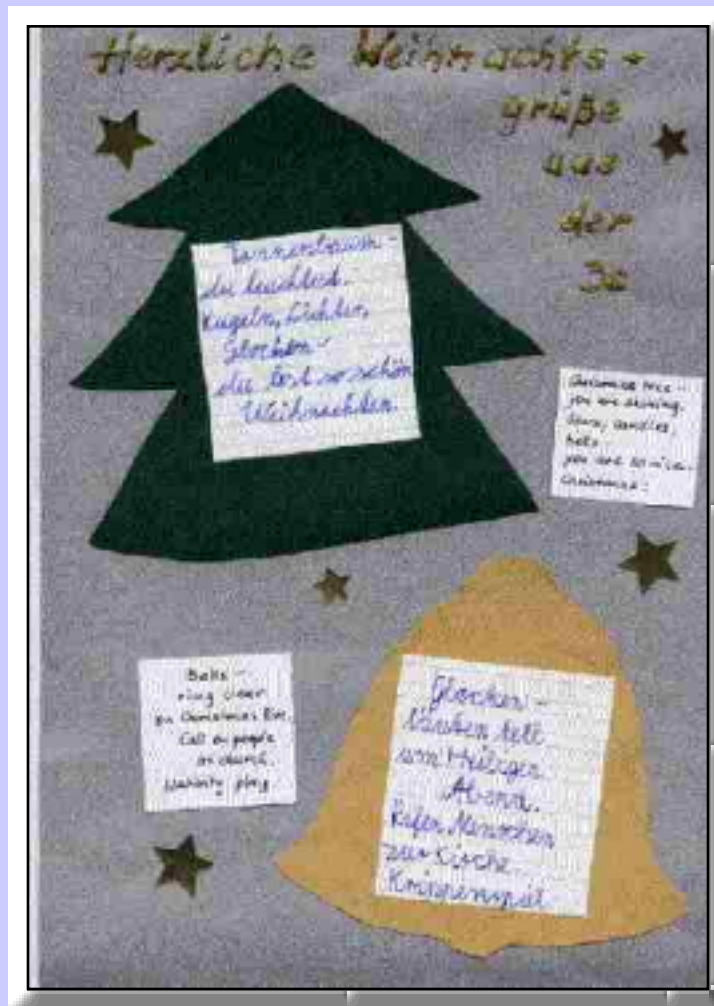 Herzliche Weihnachts-
grüße
aus
der
3c
Tannenbaum -
du leuchtest.
Kugeln, Lichter,
Glocken -
du bist so schön
Weihnachten.
Christmas tree -
you are shining.
candles,
bells
you are so nice -
Christmas!
Bells -
ring clear
on Christmas Eve.
Call on people
to church.
Nativity play
Glocken -
läuten hell
am Heiligen
Abend.
Rufen Menschen
zur Kirche.
Krippenspiel